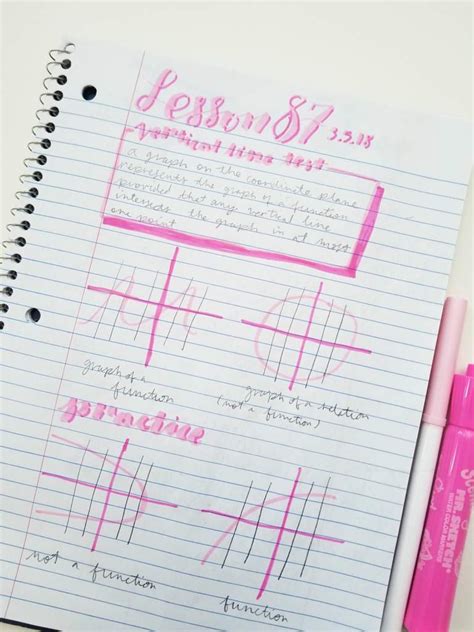 Lesson 87 3.5.18
- vertical line test
a graph on the coordinate plane
represents the graph of a function
provided that any vertical line
intersects the graph in at most
one point
graph of a
function
graph of a relation
(not a function)
practice
not a function
function
MR. SKETCH